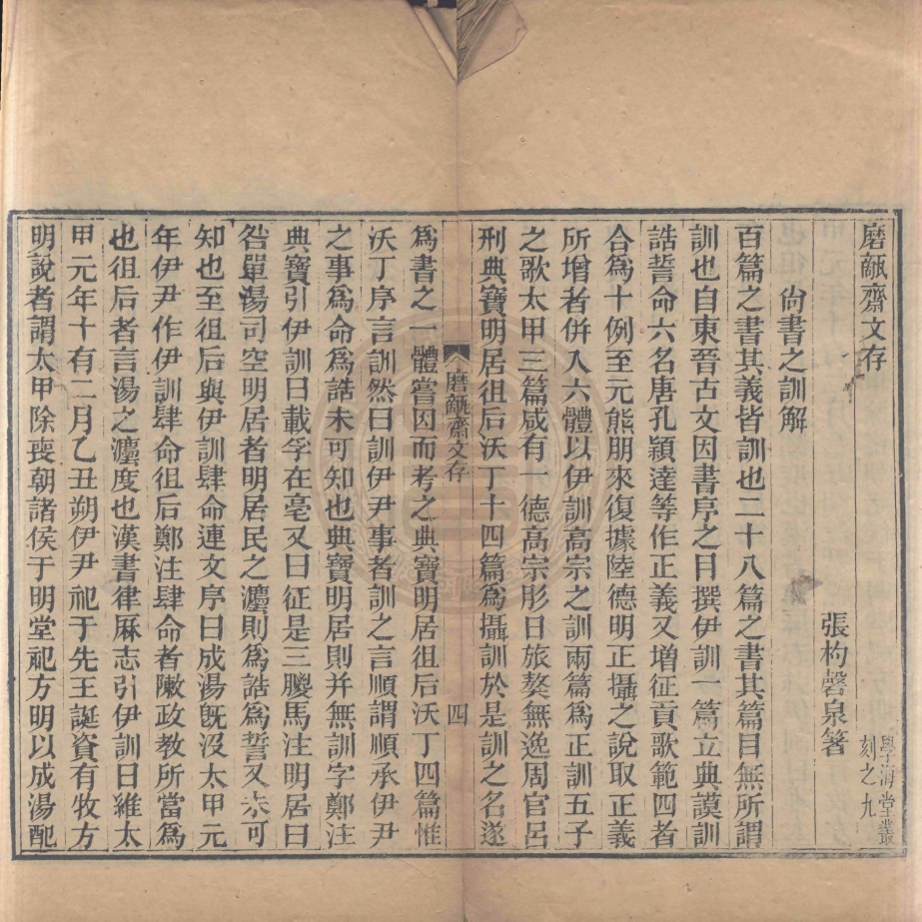 磨甋齋文存
學海堂叢
刻之九
張杓磬泉箸
尙書之訓解
百篇之書其義皆訓也二十八篇之書其篇目無所謂
訓也自東晉古文因書序之目撰伊訓一篇立典謨訓
誥誓命六名唐孔穎達等作正義又增征貢歌範四者
合爲十例至元熊朋來復據陸德明正攝之說取正義
所增者併入六體以伊訓高宗之訓兩篇爲正訓五子
之歌太甲三篇咸有一德高宗肜日旅獒無逸周官呂
刑典寶明居徂后沃丁十四篇爲攝訓於是訓之名遂
磨甋齋文存
四
爲書之一體嘗因而考之典寶明居徂后沃丁四篇惟
沃丁序言訓然曰訓伊尹事者訓之言順謂順承伊尹
之事爲命爲誥未可知也典寶明居則并無訓字鄭注
典寶引伊訓曰載孚在亳又曰征是三朡馬注明居曰
咎單湯司空明居者明居民之灋則爲誥爲誓又未可
知也至徂后與伊訓肆命連文序曰成湯旣沒太甲元
年伊尹作伊訓肆命徂后鄭注肆命者敶政教所當爲
也徂后者言湯之灋度也漢書律厤志引伊訓曰維太
甲元年十有二月乙丑朔伊尹祀于先王誕資有牧方
明說者謂太甲除喪朝諸侯于明堂祀方明以成湯配